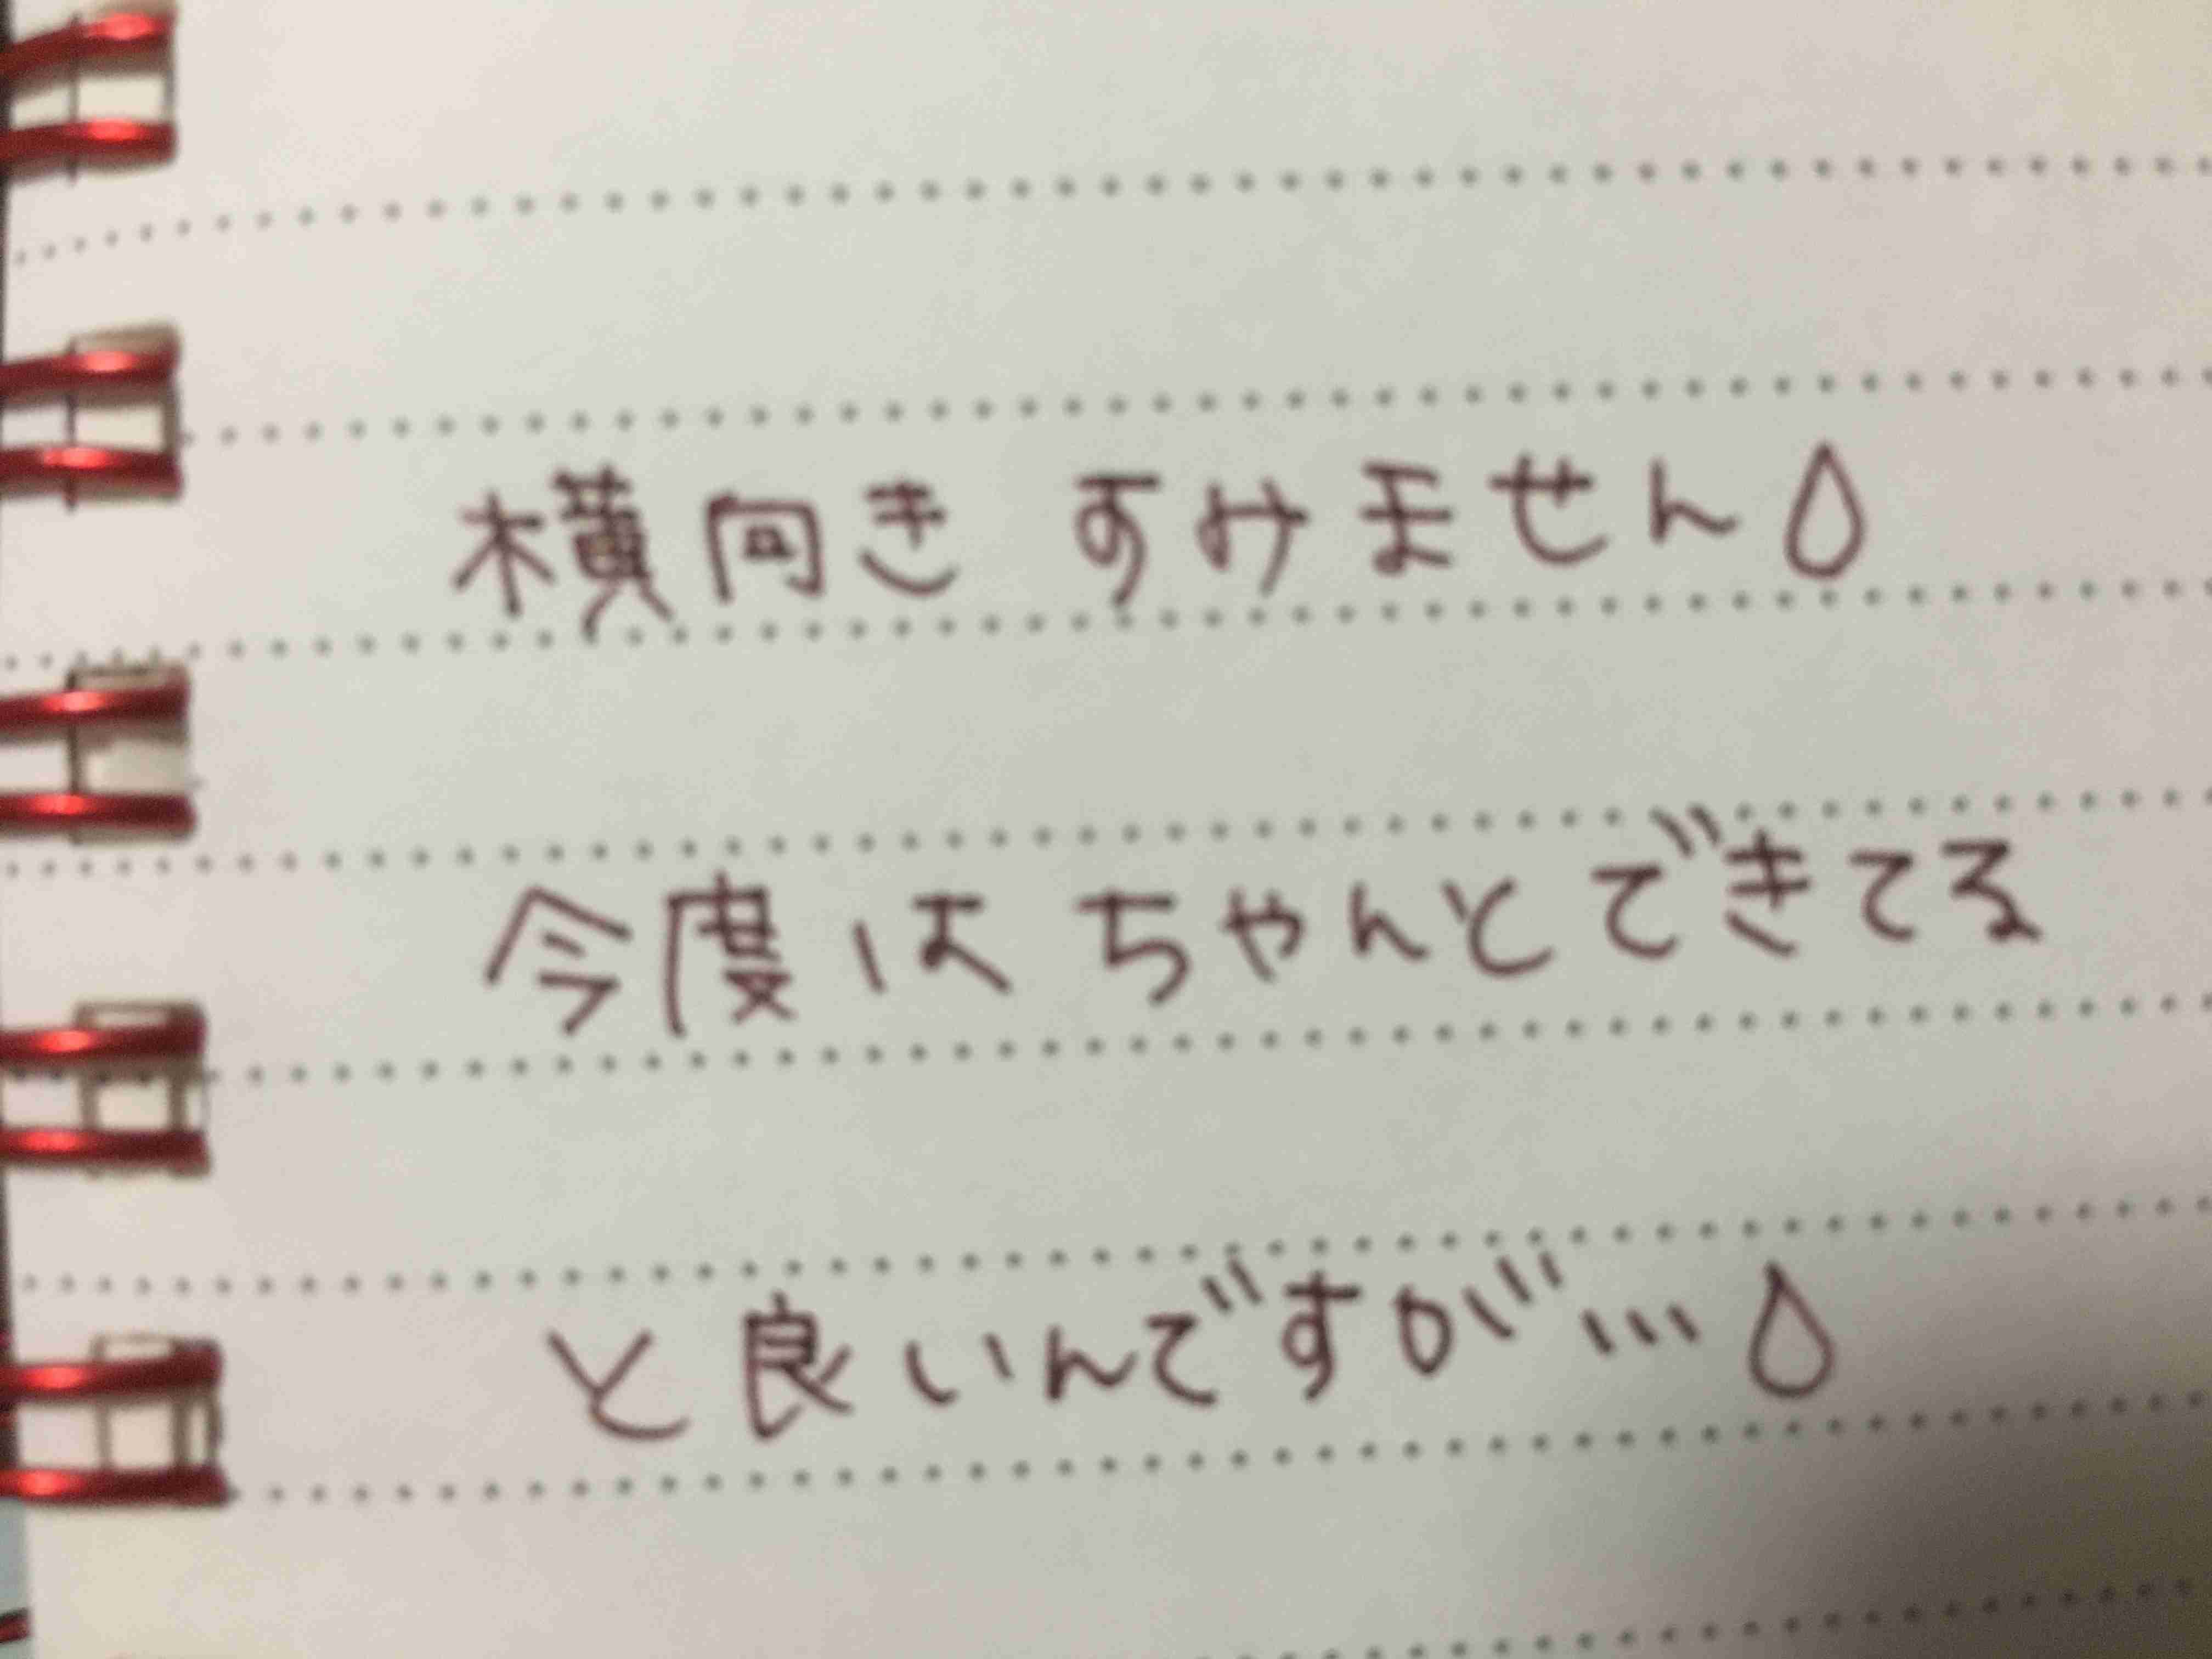 横向き すみません💧
今度は ちゃんとできてる
と良いんですが…💧